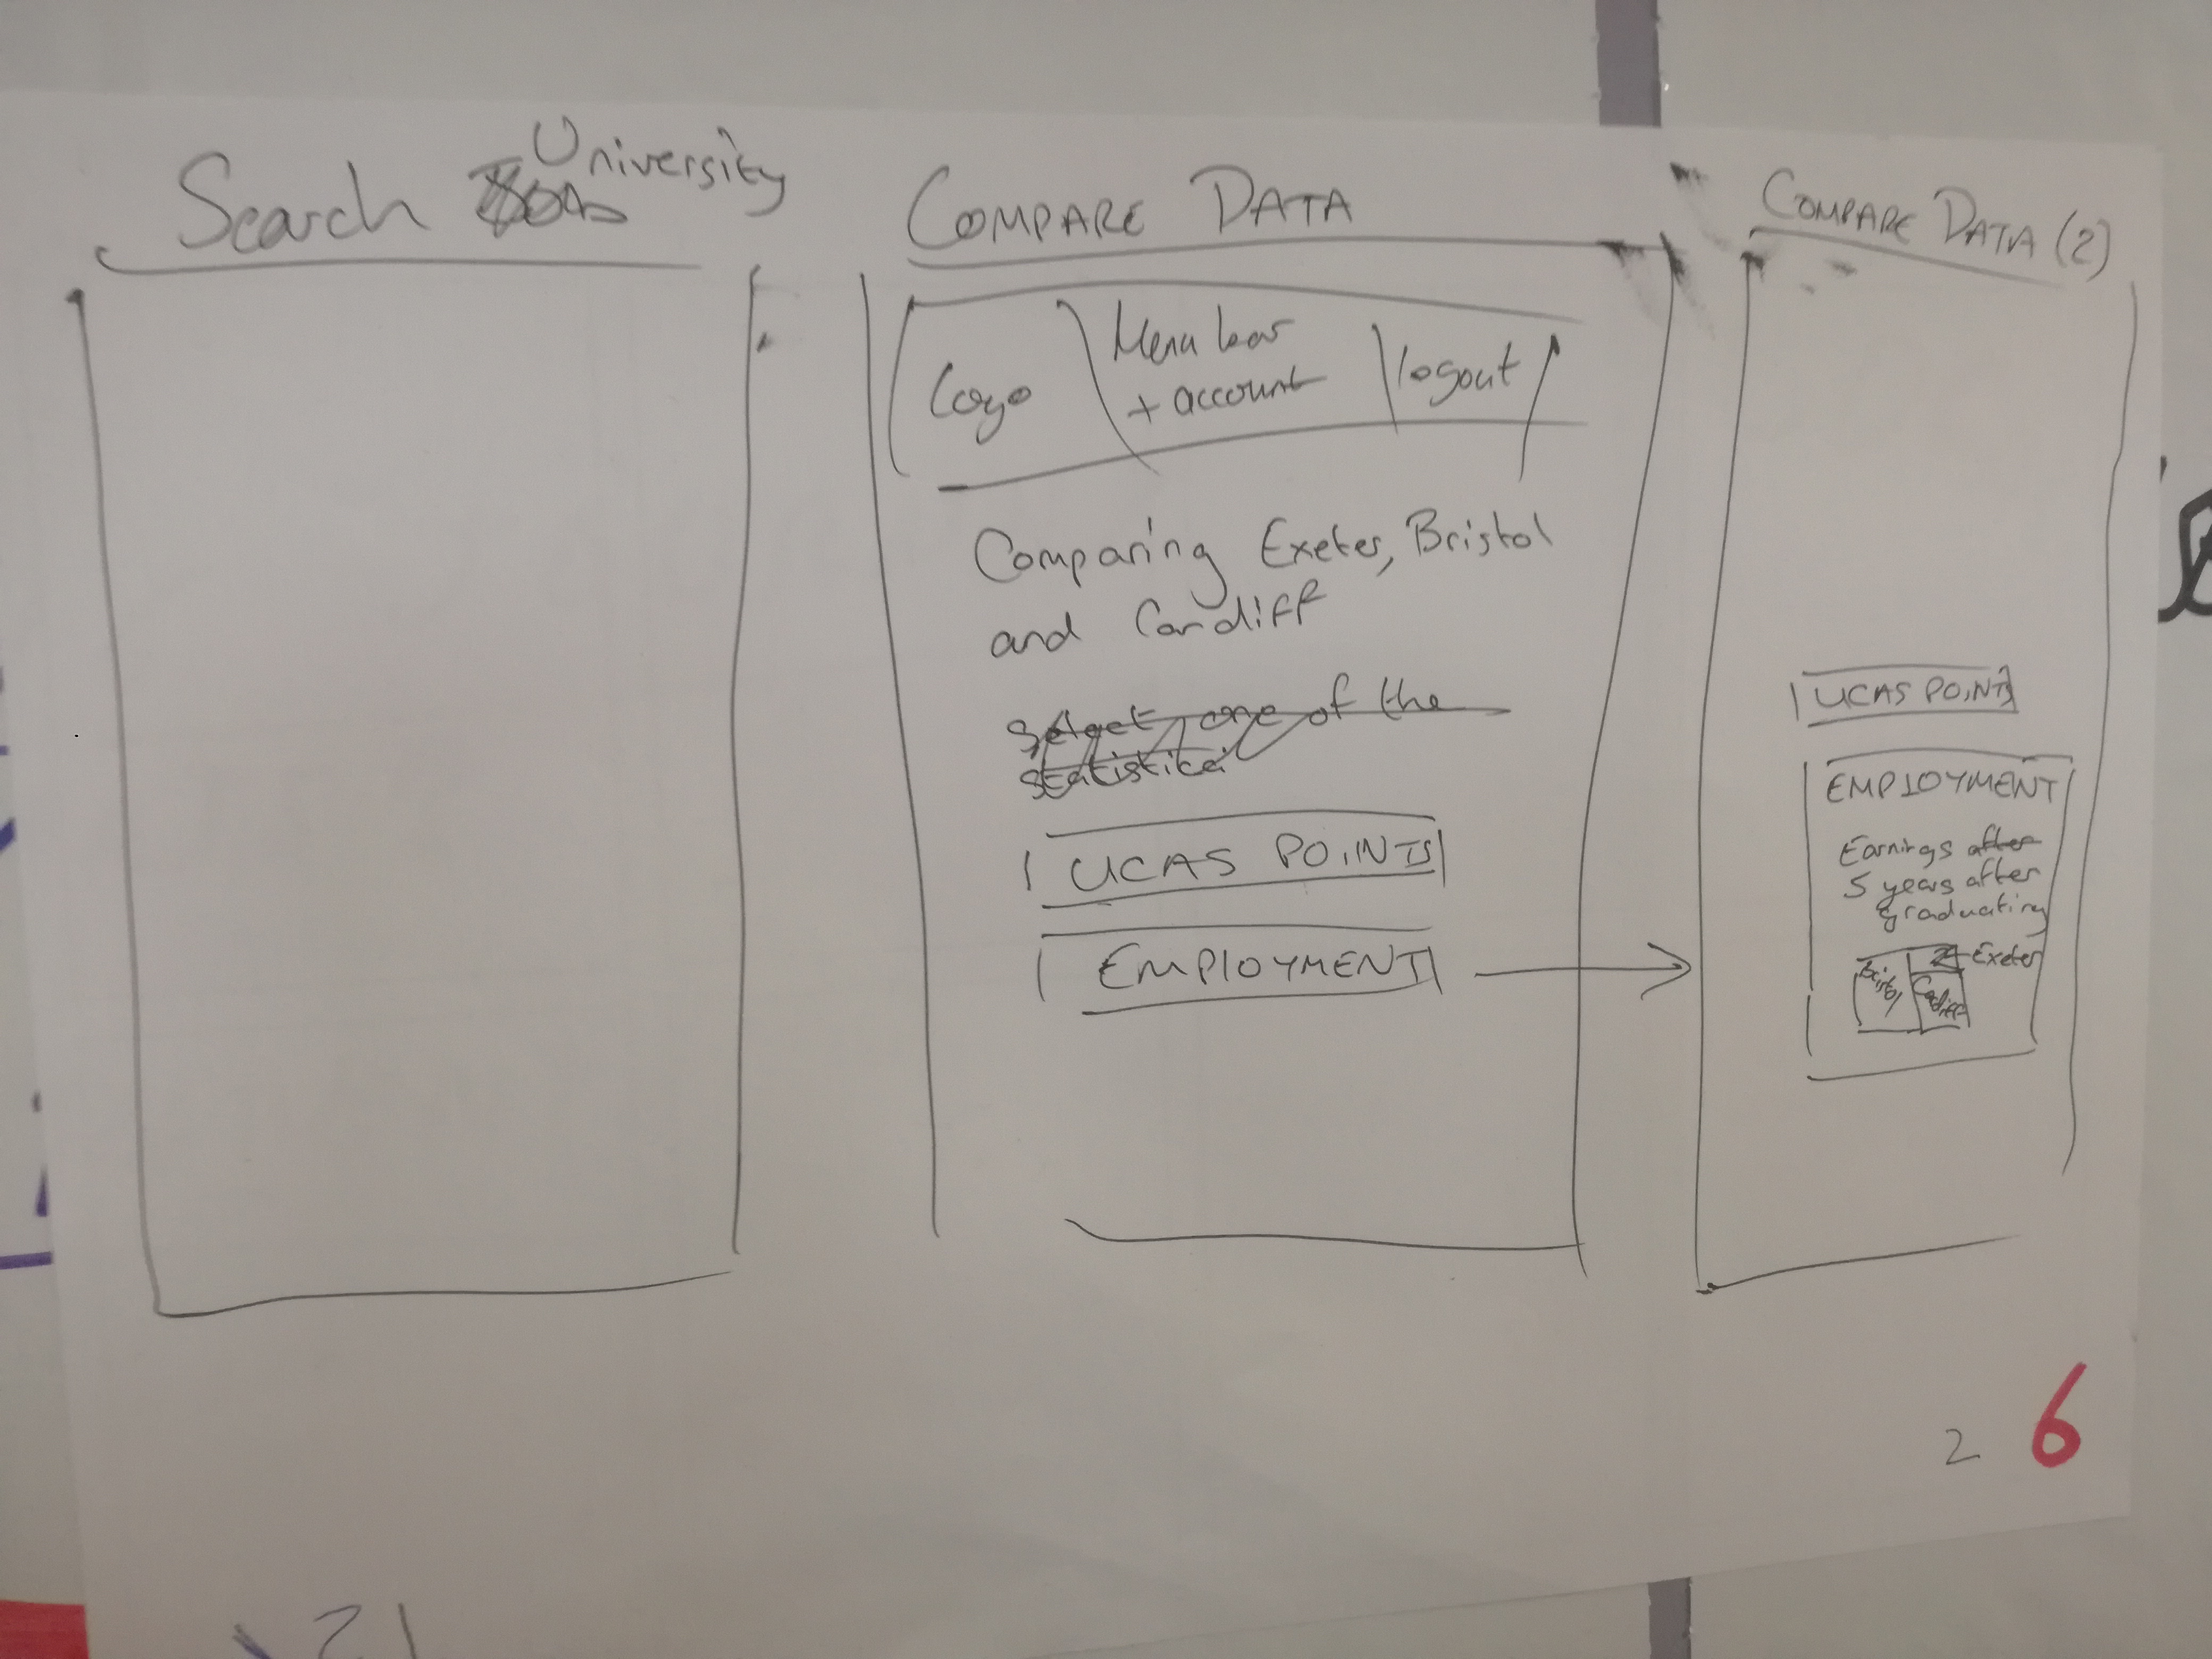 Search University
COMPARE DATA
Logo
Menu bar
+ account
logout
Comparing Exeter, Bristol
and Cardiff
Select one of the
statistics
UCAS POINTS
EMPLOYMENT
COMPARE DATA (2)
UCAS POINTS
EMPLOYMENT
Earnings after
5 years after
graduating
Exeter
Bristol
Cardiff
2 6